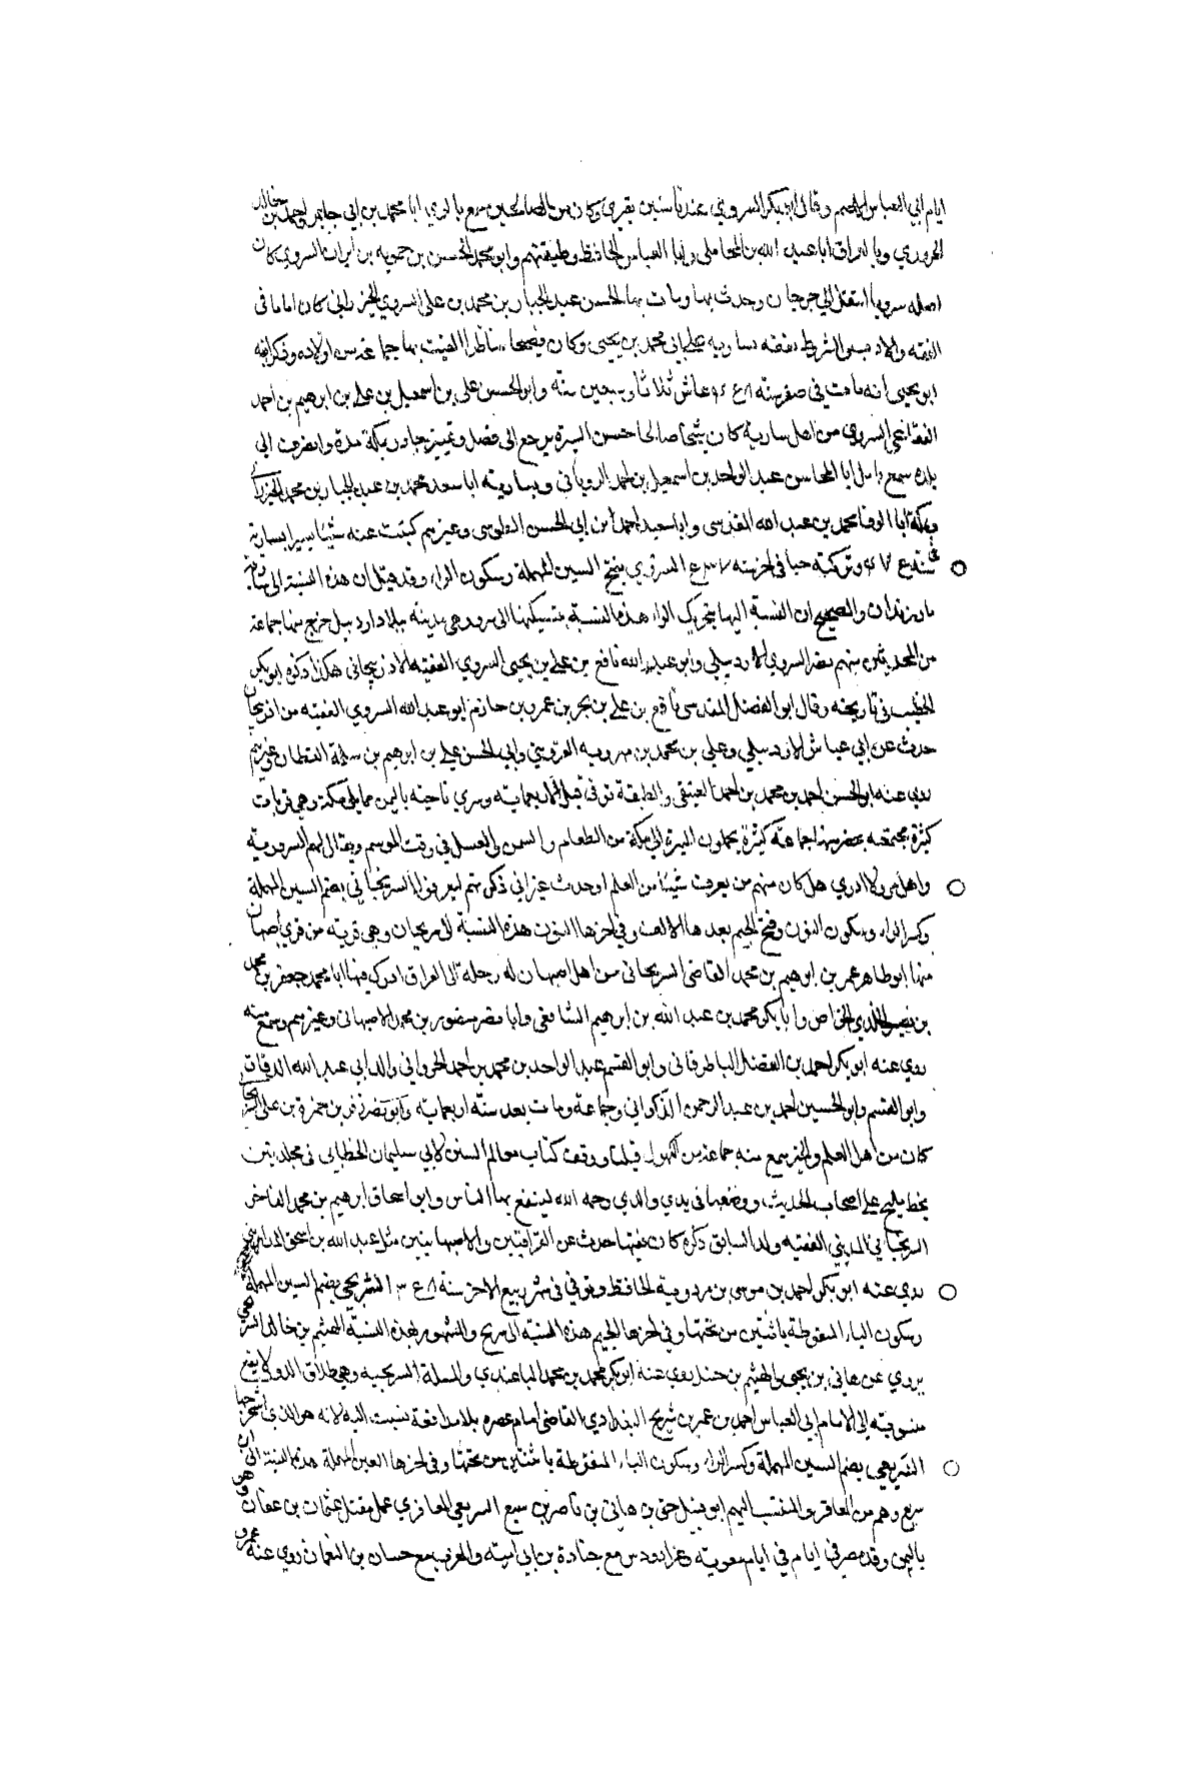 ايام ابي العباس الاصم وقال ابو بكر السروي عندنا سنين يقري وكان من الصالحين سمع بالري ابا محمد بن ابي حاتم واحمد بن خالد
الحروري وبالعراق ابا عبد الله بن المحاملي وابا العباس الحافظ وطبقتهم وابو محمد الحسن بن حمويه بن ايران السروي كان
اصله سرويا انتقل الي جرجان وحدث بها ومات بها الحسن عبد الجبار بن محمد بن علي السروي كان اماما في
الفقه والادب تفقه بسارية علي ابي محمد بن يحيى وكان فصيحا مناظرا لقيت بها جماعة من اولاده وذكر ابنه
ابو يحيى انه مات في صفر سنة عاش ثلاثا وسبعين سنة وابو الحسن علي بن اسمعيل بن علي بن ابراهيم بن احمد
السروي من اهل سارية كان شيخا صالحا حسن السيرة يرجع الى فضل وتمييز جاور بمكة مدة وانصرف الي
بلده سمع بامل ابا المحاسن عبد الواحد بن اسمعيل بن احمد الروياني وبسارية ابا سعد محمد بن عبد الجبار بن محمد
وبمكة ابا الوفا محمد بن عبد الله المقدسي وابا سعيد احمد بن ابي الحسن الطوسي وغيرهم كتبت عنه شيئا يسيرا بسارية
وتركته حيا في اخر سنة السروي بفتح السين المهملة وسكون الراء وقد قيل ان هذه النسبة الى سارية
مازندران والصحيح ان النسبة اليها بتحريك الراء هذه النسبة بتسكينها الى سرو وهي مدينة ببلاد اردبيل خرج منها جماعة
من المحدثين منهم نصر السروي الاردبيلي وابو عبد الله نافع بن علي بن يحيى السروي الفقيه الاذربيجاني هكذا ذكره ابو بكر
الخطيب في تاريخه وقال ابو الفضل المقدسي نافع بن علي بن بحر بن عمرو بن حازم ابو عبد الله السروي الفقيه من اذربيجان
حدث عن ابي عياش الاردبيلي وعلي بن محمد بن مهرويه القزويني وابي الحسن علي بن ابراهيم بن سلمة القطان وغيرهم
روي عنه ابو الحسن احمد بن محمد بن احمد العتيقي والطبقة توفي قبل وسري ناحية باليمن مما يلي مكة وهي قريات
كثيرة مجتمعة بحضر منها جماعة كثيرة يحملون الميرة الي مكة من الطعام والسمن والعسل في وقت الموسم ويقال لهم السروية
واهل سرو لا ادري هل كان منهم من يعرف شيئا من العلم او حدث غير اني ذكرتهم ليعرفوا السرنجاني بضم السين المهملة
وكسر الراء وسكون النون وفتح الجيم بعدها الالف وفي اخرها النون هذه النسبة الى سرنجان وهي قرية من قري اصبهان
منها ابو طاهر عمر بن ابراهيم بن محمد القاضي السرنجاني من اهل اصبهان له رحلة الى العراق ادرك فيها ابا محمد جعفر بن محمد
بن نصير الخلدي الخواص وابا بكر محمد بن عبد الله بن ابراهيم الشافعي وابا مضر منصور بن محمد الاصبهاني وغيرهم وسمع منه
روي عنه ابو بكر احمد بن الفضل الباطرقاني وابو القسم عبد الواحد بن محمد بن احمد والد ابي عبد الله الدقاق
وابو القسم وابو الحسين احمد بن عبد الرحمن الذكواني وجماعة ومات بعد سنة اربعماية وابو نصر بن حمزة بن علي
كان من اهل العلم والخير سمع منه جماعة من الكهول قبلنا ووقف كتاب معالم السنن لابي سليمان الخطابي في مجلدتين
بخط مليح علي اصحاب الحديث ووضعها في يدي والدي رحمه الله لينتفع بها الناس وابو اسحاق ابرهيم بن محمد الفاخر
السرنجاني المديني الفقيه ولد السابق ذكره كان فقيها حدث عن العراقيين والاصبهانيين مثل عبد الله بن اسحق
روي عنه ابو بكر احمد بن موسى بن مردويه الحافظ وتوفي في شهر ربيع الاخر سنة السريجي بضم السين المهملة
وسكون الياء المنقوطة باثنتين من تحتها وفي اخرها الجيم هذه النسبة الى سريج والمشهور بهذه النسبة الهيثم بن خالد
يروي عن هاني بن يحيى والهيثم بن روي عنه ابو بكر محمد بن محمد الباغندي والمسلة السريجية وهي طلاق الدور لا يقع
منسوبة الي الامام ابي العباس احمد بن عمر بن سريج البغدادي القاضي امام عصره بلا مدافعة نسبت اليه لانه هو الذي
السريعي بضم السين المهملة وكسر الراء وسكون الياء المنقوطة باثنتين من تحتها وفي اخرها العين المهملة هذه النسبة الى
سريع وهم من المعافر والمنتسب اليهم ابو قبيل حيي بن هاني بن ناصر بن سريع السريعي المعافري عقل مقتل عثمان بن عفان وهو
باليمن وقدم مصر في ايام معوية وغزا رودس مع جنادة بن ابي امية والمغرب مع حسان بن النعمان روي عنه عمرو